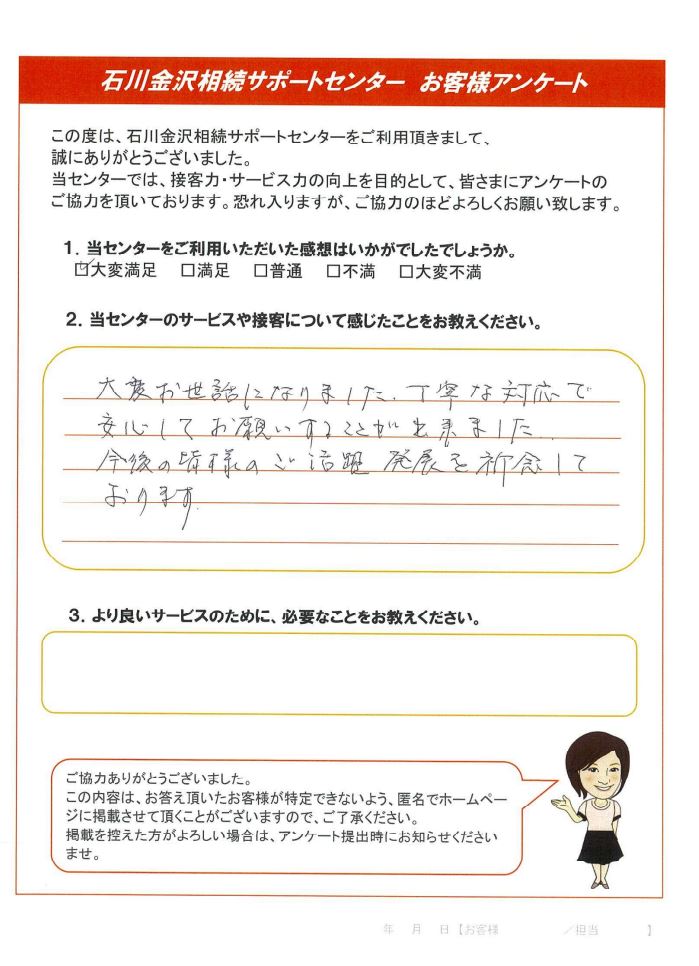 石川金沢相続サポートセンター お客様アンケート
この度は、石川金沢相続サポートセンターをご利用頂きまして、
誠にありがとうございました。
当センターでは、接客力・サービス力の向上を目的として、皆さまにアンケートの
ご協力を頂いております。恐れ入りますが、ご協力のほどよろしくお願い致します。
1. 当センターをご利用いただいた感想はいかがでしたでしょうか。
☑大変満足 □満足 □普通 □不満 □大変不満
2. 当センターのサービスや接客について感じたことをお教えください。
大変お世話になりました。丁寧な対応で
安心してお願いすることが出来ました。
今後の皆様のご活躍 発展を祈念して
おります。
3. より良いサービスのために、必要なことをお教えください。
ご協力ありがとうございました。
この内容は、お答え頂いたお客様が特定できないよう、匿名でホームペー
ジに掲載させて頂くことがございますので、ご了承ください。
掲載を控えた方がよろしい場合は、アンケート提出時にお知らせください
ませ。
年 月 日【お客様 ／担当 】